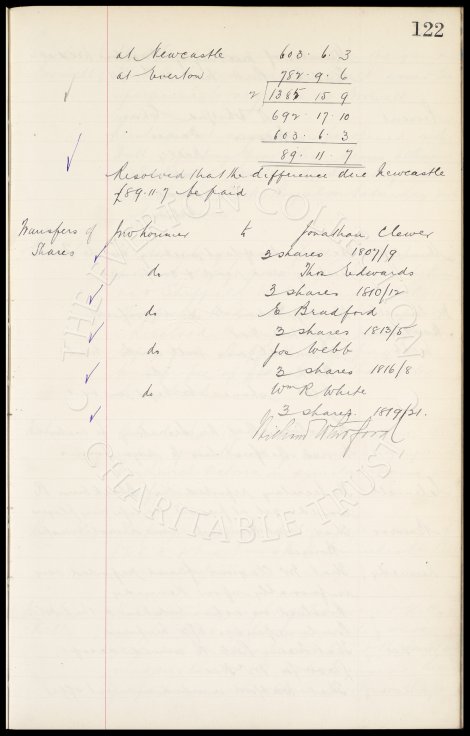 122
at Newcastle 603 . 6 . 3
at Everton 782 . 9 . 6
2 1385 15 9
692 . 17 . 10
603 . 6 . 3
89 . 11 . 7
Resolved that the difference due Newcastle
£89.11.7 be paid
Transfers of Shares
to Jonathan Clewer
3 shares 1807/9
do Thos Edwards
3 shares 1810/12
do E Bradford
3 shares 1813/5
do Jos Webb
3 shares 1816/8
do Wm R White
3 shares. 1819/21.
THE EVERTON COLLECTION
CHARITABLE TRUST